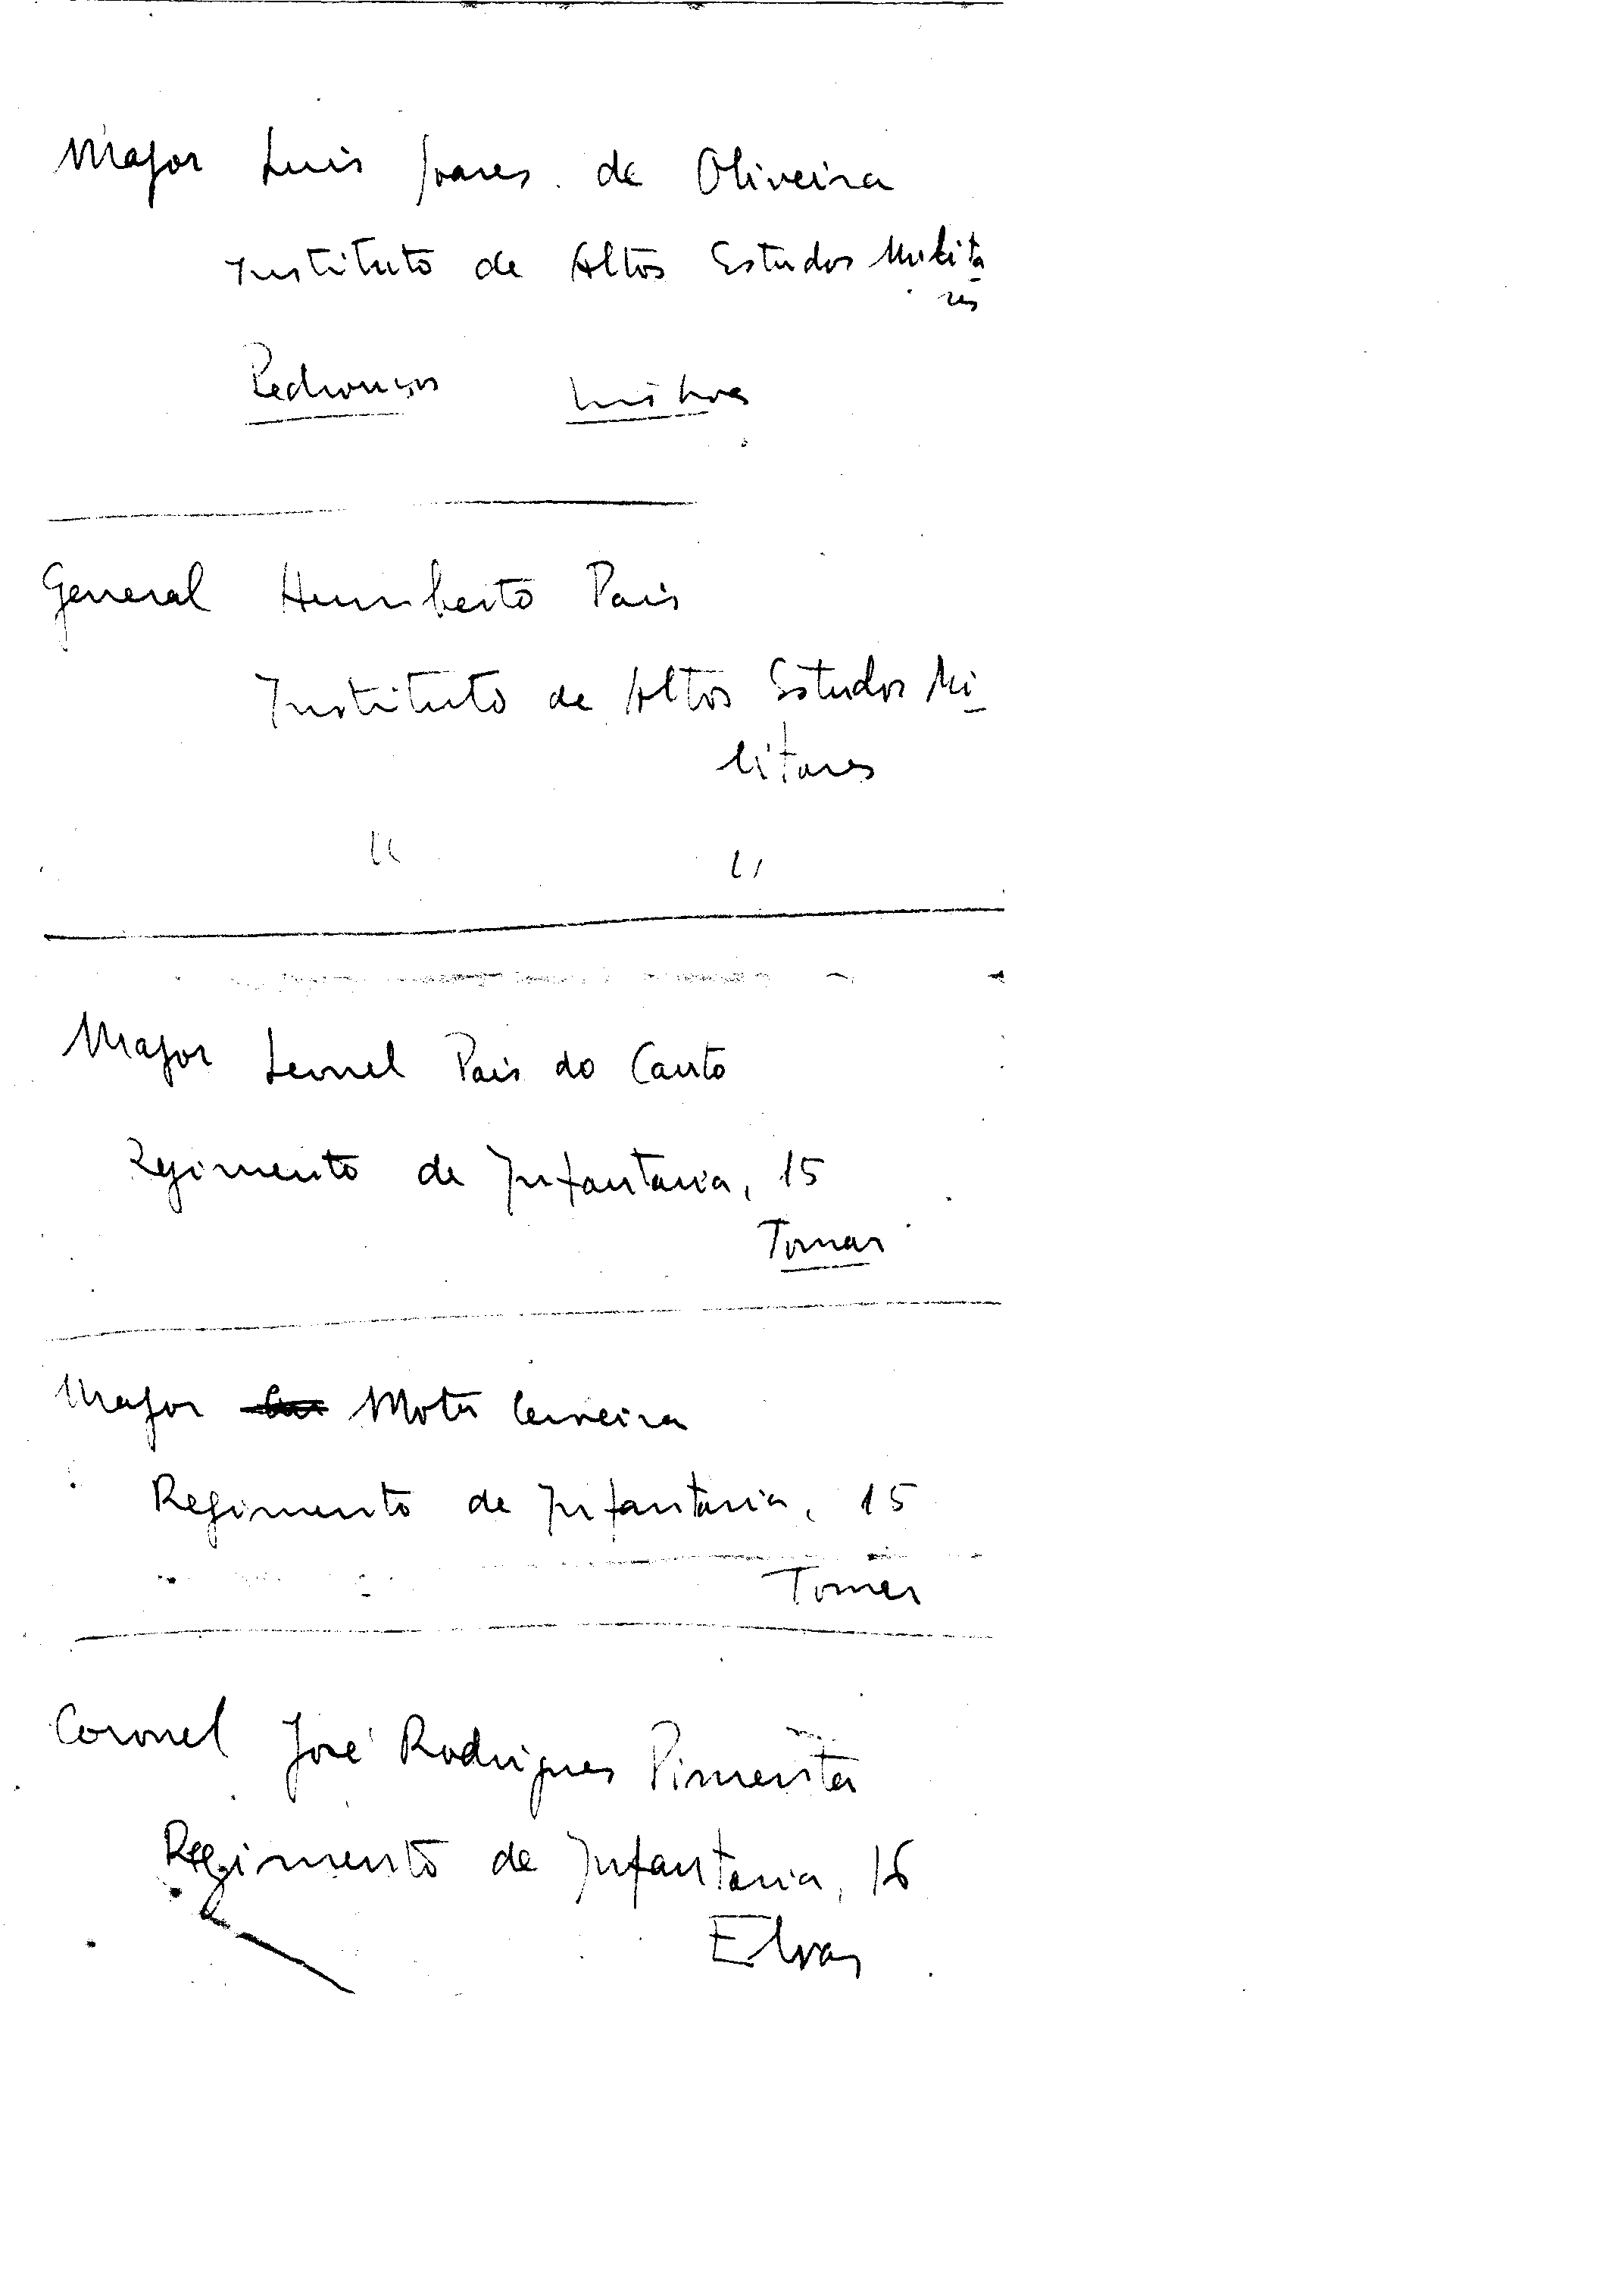 Major Luis Soares de Oliveira
Instituto de Altos Estudos Milita
res
Pedrouços Lisboa
General Humberto Pais
Instituto de Altos Estudos Mi
litares
" "
Major Leonel Pais do Canto
Regimento de Infantaria, 15
Tomar
Major Mota Cerveira
Regimento de Infantaria, 15
Tomar
Coronel José Rodrigues Pimenta
Regimento de Infantaria, 16
Elvas